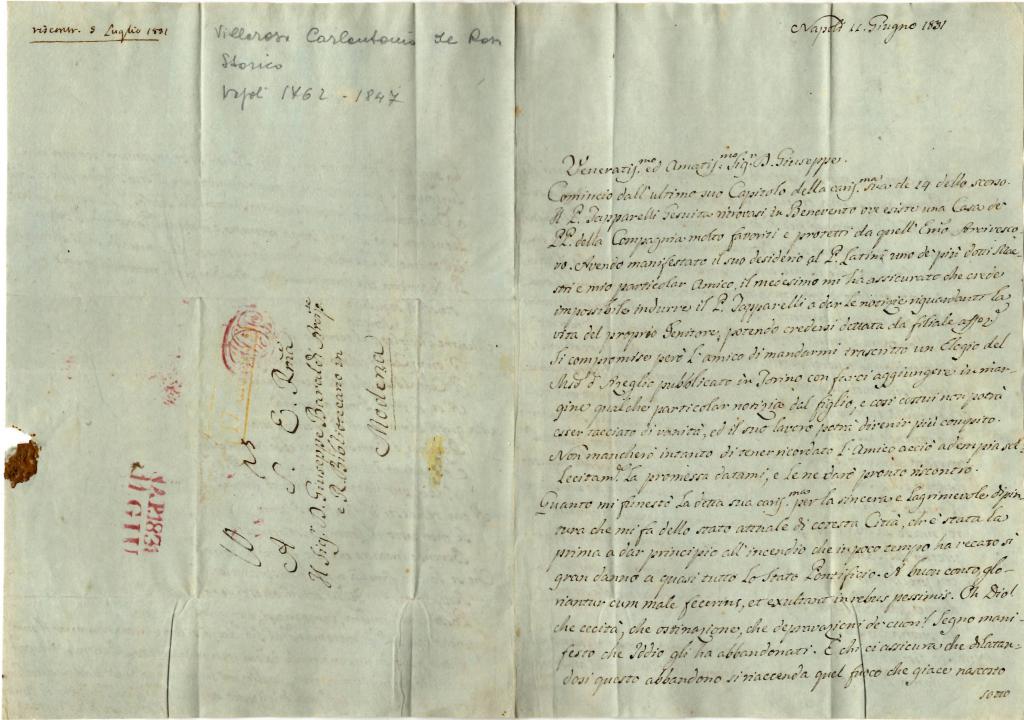 riscontr. 3 Luglio 1831
Villarosa Carlantonio de Rosa
Storico
Napoli 1762 - 1847
NAP. 1831
11 GIU
A S. E. Rma
Il Sigr. D. Giuseppe Baraldi
e R. Bibliotecario in
Modena
Napoli 11 Giugno 1831
Veneratis.mo ed Amatis.mo Sigr. D. Giuseppe.
Comincio dall'ultimo suo Capitolo della caris.ma sua de 24 dello scorso.
Il P. Tapparelli Gesuita ritrovasi in Benevento ove esiste una Casa de
PP. della Compagnia molto favoriti e protetti da quell'Emo Arcivesco-
vo. Avendo manifestato il suo desiderio al P. Latini uno de' più dotti
stri e mio particolar Amico, il medesimo mi ha assicurato che crede
impossibile indurre il P. Tapparelli a dar le notizie riguardanti la
vita del proprio Genitore, potendo credersi dettata da filiale affez.
Si compromise però l'amico di mandarmi trascritto un Elogio del
d'Azeglio pubblicato in Torino con farci aggiungere in mar-
gine qualche particolar notizia dal figlio, e così costui non potrà
esser tacciato di vanità, ed il suo lavoro potrà divenir più compito.
Non mancherò intanto di tener ricordato l'Amico acciò adempia sol-
lecitam.te la promessa datami, e le ne darò pronto riscontro.
Quanto mi funestò la detta sua caris.ma per la sincera e lagrimevole dipin-
tura che mi fa dello stato attuale di cotesta Città, ch'è stata la
prima a dar principio all'incendio che in poco tempo ha recato sì
gran danno a quasi tutto lo Stato Pontificio. A buon conto, glo-
riantur cum male fecerint, et exultant in rebus pessimis. Oh Dio!
che cecità, che ostinazione, che depravazioni de' cuori! Segno mani-
festo che Iddio gli ha abbandonati. E chi ci assicura che dilatan-
dosi questo abbandono si riaccenda quel fuoco che giace nascosto
sotto